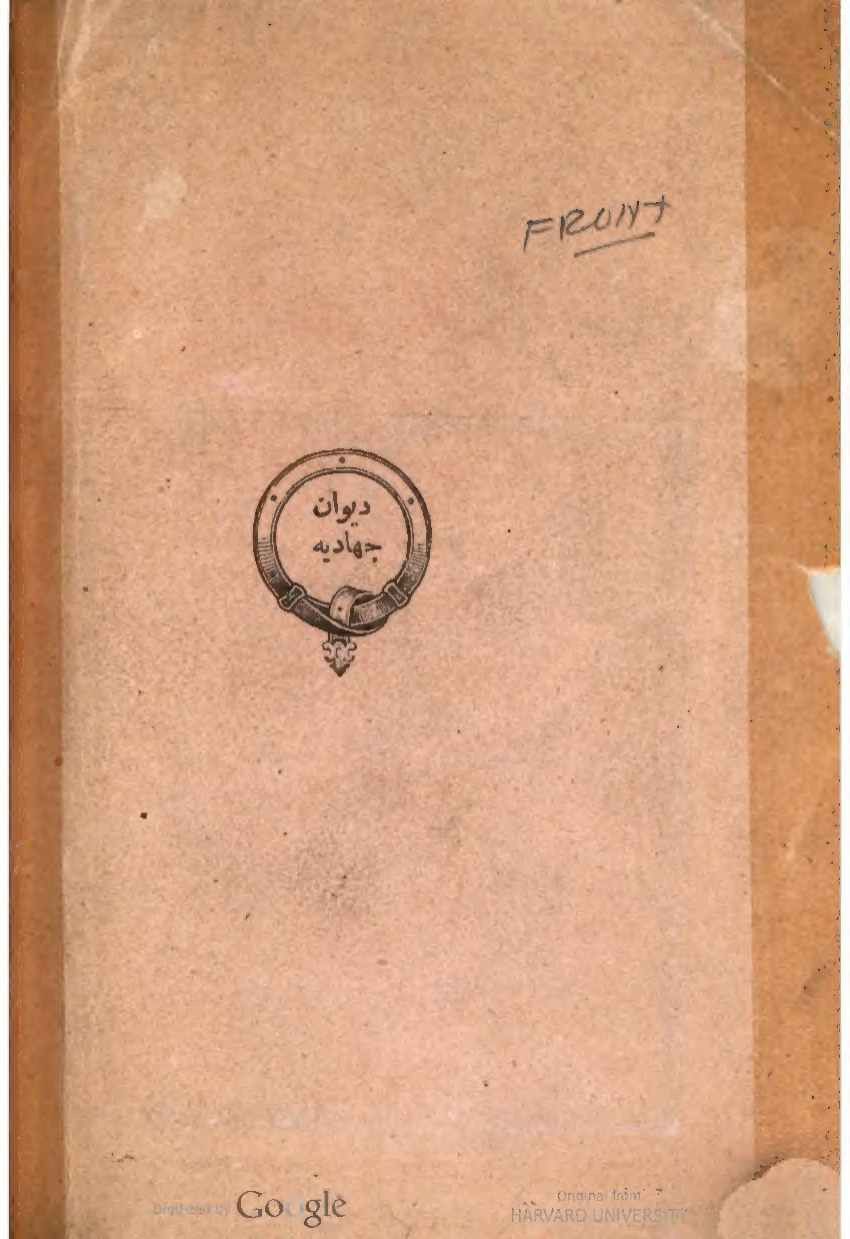 FRONT
ديوان
جهاديه
Digitized by Google
Original from
HARVARD UNIVERSITY